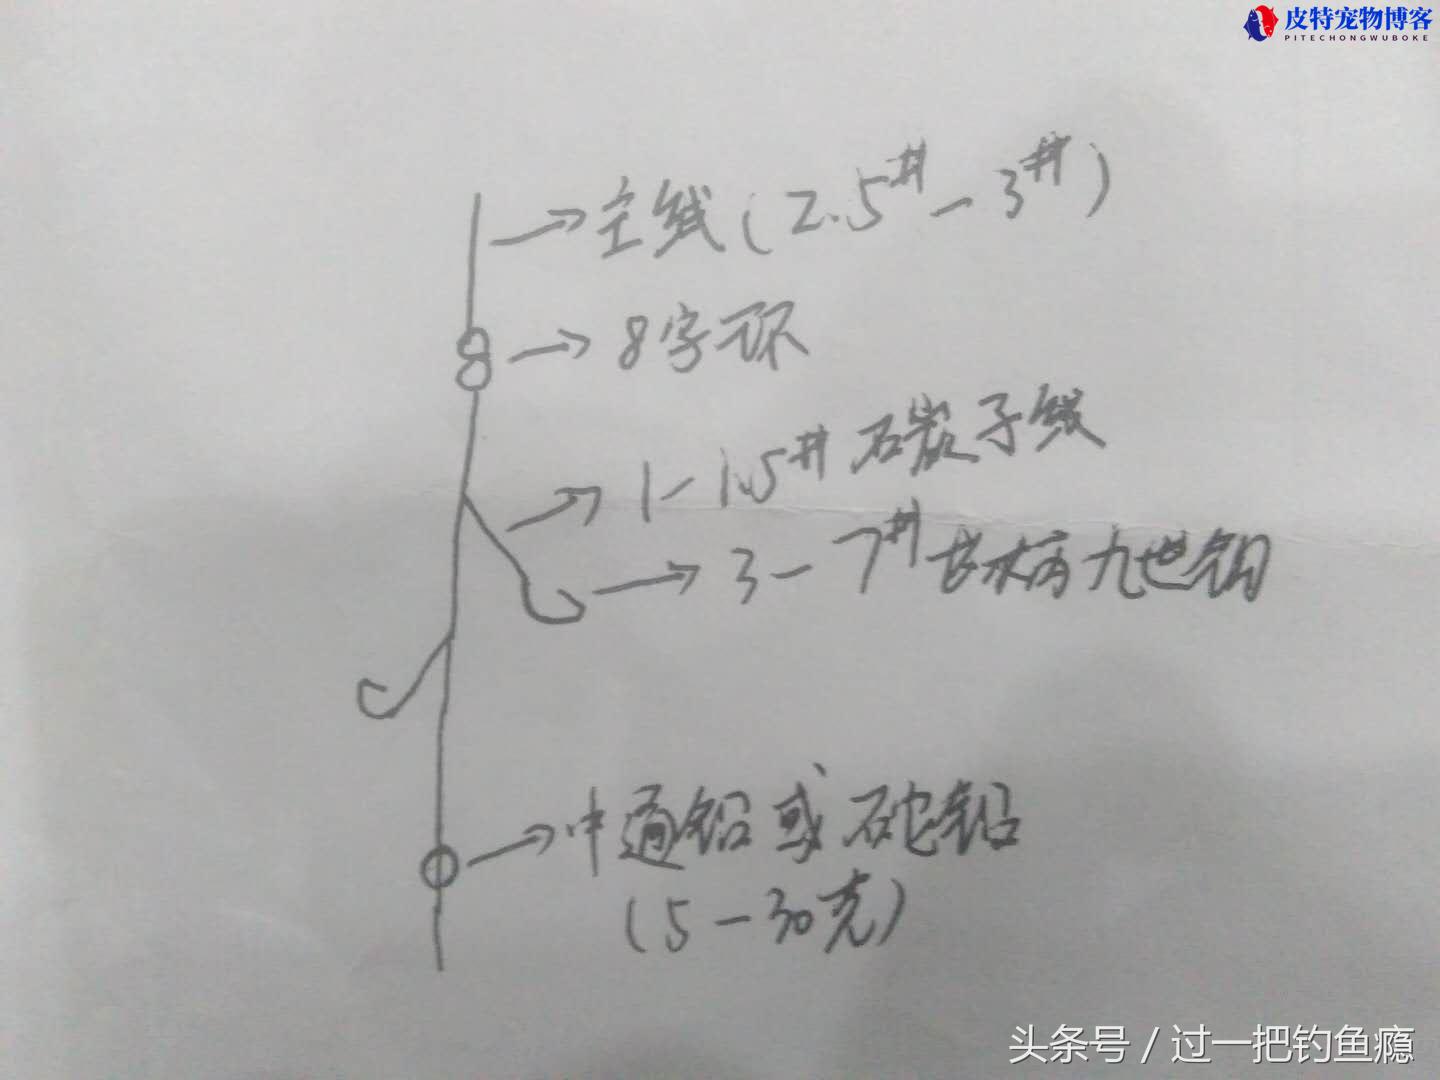 皮特宠物博客
PITECHONGWUBOKE
主线(2.5#-3#)
8字环
1-1.5#石炭子线
3-7#长柄九世钩
中通铅或砣铅
(5-30克)
头条号/过一把钓鱼瘾